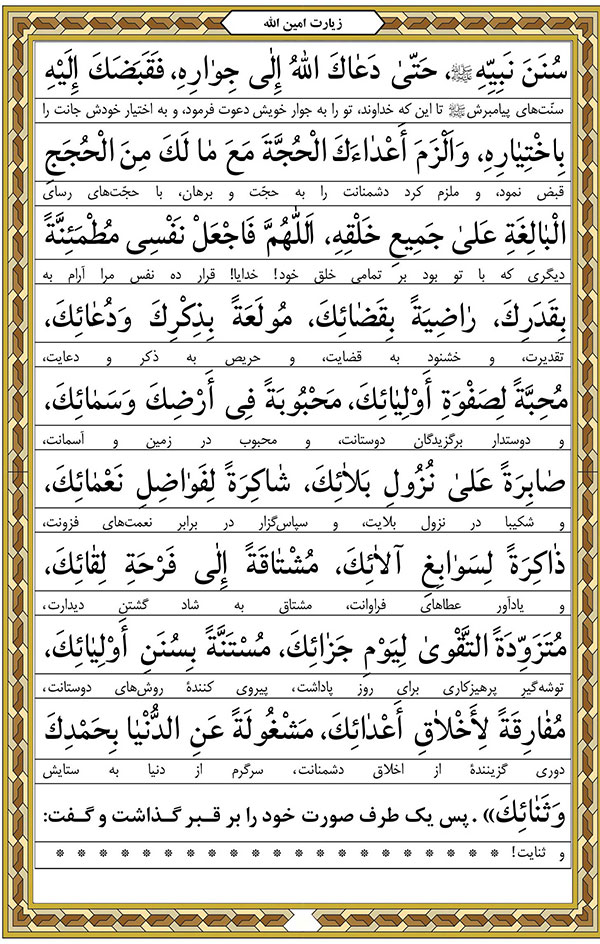 زیارت امین الله
سُنَنَ نَبِيِّهِ ﷺ، حَتّىٰ دَعٰاكَ اللهُ إِلٰى جِوٰارِهِ، فَقَبَضَكَ إِلَيْهِ
سنّت‌های پیامبرش ﷺ تا این که خداوند، تو را به جوار خویش دعوت فرمود، و به اختیار خودش جانت را
بِاخْتِيٰارِهِ، وَأَلْزَمَ أَعْدٰاءَكَ الْحُجَّةَ مَعَ مٰا لَكَ مِنَ الْحُجَجِ
قبض نمود، و ملزم کرد دشمنانت را به حجّت و برهان، با حجّت‌های رسای
الْبٰالِغَةِ عَلىٰ جَمِيعِ خَلْقِهِ، اَللّٰهُمَّ فَاجْعَلْ نَفْسِى مُطْمَئِنَّةً
دیگری که با تو بود بر تمامی خلق خود! خدایا! قرار ده نفس مرا آرام به
بِقَدَرِكَ، رٰاضِيَةً بِقَضٰائِكَ، مُولَعَةً بِذِكْرِكَ وَدُعٰائِكَ،
تقدیرت، و خشنود به قضایت، و حریص به ذکر و دعایت،
مُحِبَّةً لِصَفْوَةِ أَوْلِيٰائِكَ، مَحْبُوبَةً فِى أَرْضِكَ وَسَمٰائِكَ،
و دوستدار برگزیدگان دوستانت، و محبوب در زمین و آسمانت،
صٰابِرَةً عَلىٰ نُزُولِ بَلاٰئِكَ، شٰاكِرَةً لِفَوٰاضِلِ نَعْمٰائِكَ،
و شکیبا در نزول بلایت، و سپاس‌گزار در برابر نعمت‌های فزونت،
ذٰاكِرَةً لِسَوٰابِغِ آلاٰئِكَ، مُشْتٰاقَةً إِلٰى فَرْحَةِ لِقٰائِكَ،
و یادآور عطاهای فراوانت، مشتاق به شاد گشتنِ دیدارت،
مُتَزَوِّدَةً التَّقْوىٰ لِيَوْمِ جَزٰائِكَ، مُسْتَنَّةً بِسُنَنِ أَوْلِيٰائِكَ،
توشه‌گیرِ پرهیزکاری برای روز پاداشت، پیروی کنندهٔ روش‌های دوستانت،
مُفٰارِقَةً لِأَخْلاٰقِ أَعْدٰائِكَ، مَشْغُولَةً عَنِ الدُّنْيٰا بِحَمْدِكَ
دوری گزینندهٔ از اخلاق دشمنانت، سرگرم از دنیا به ستایش
وَثَنٰائِكَ» . پس یک طرف صورت خود را بر قبر گذاشت و گفت:
و ثنایت! * * * * * * * * * * * * * * * * * * * * *